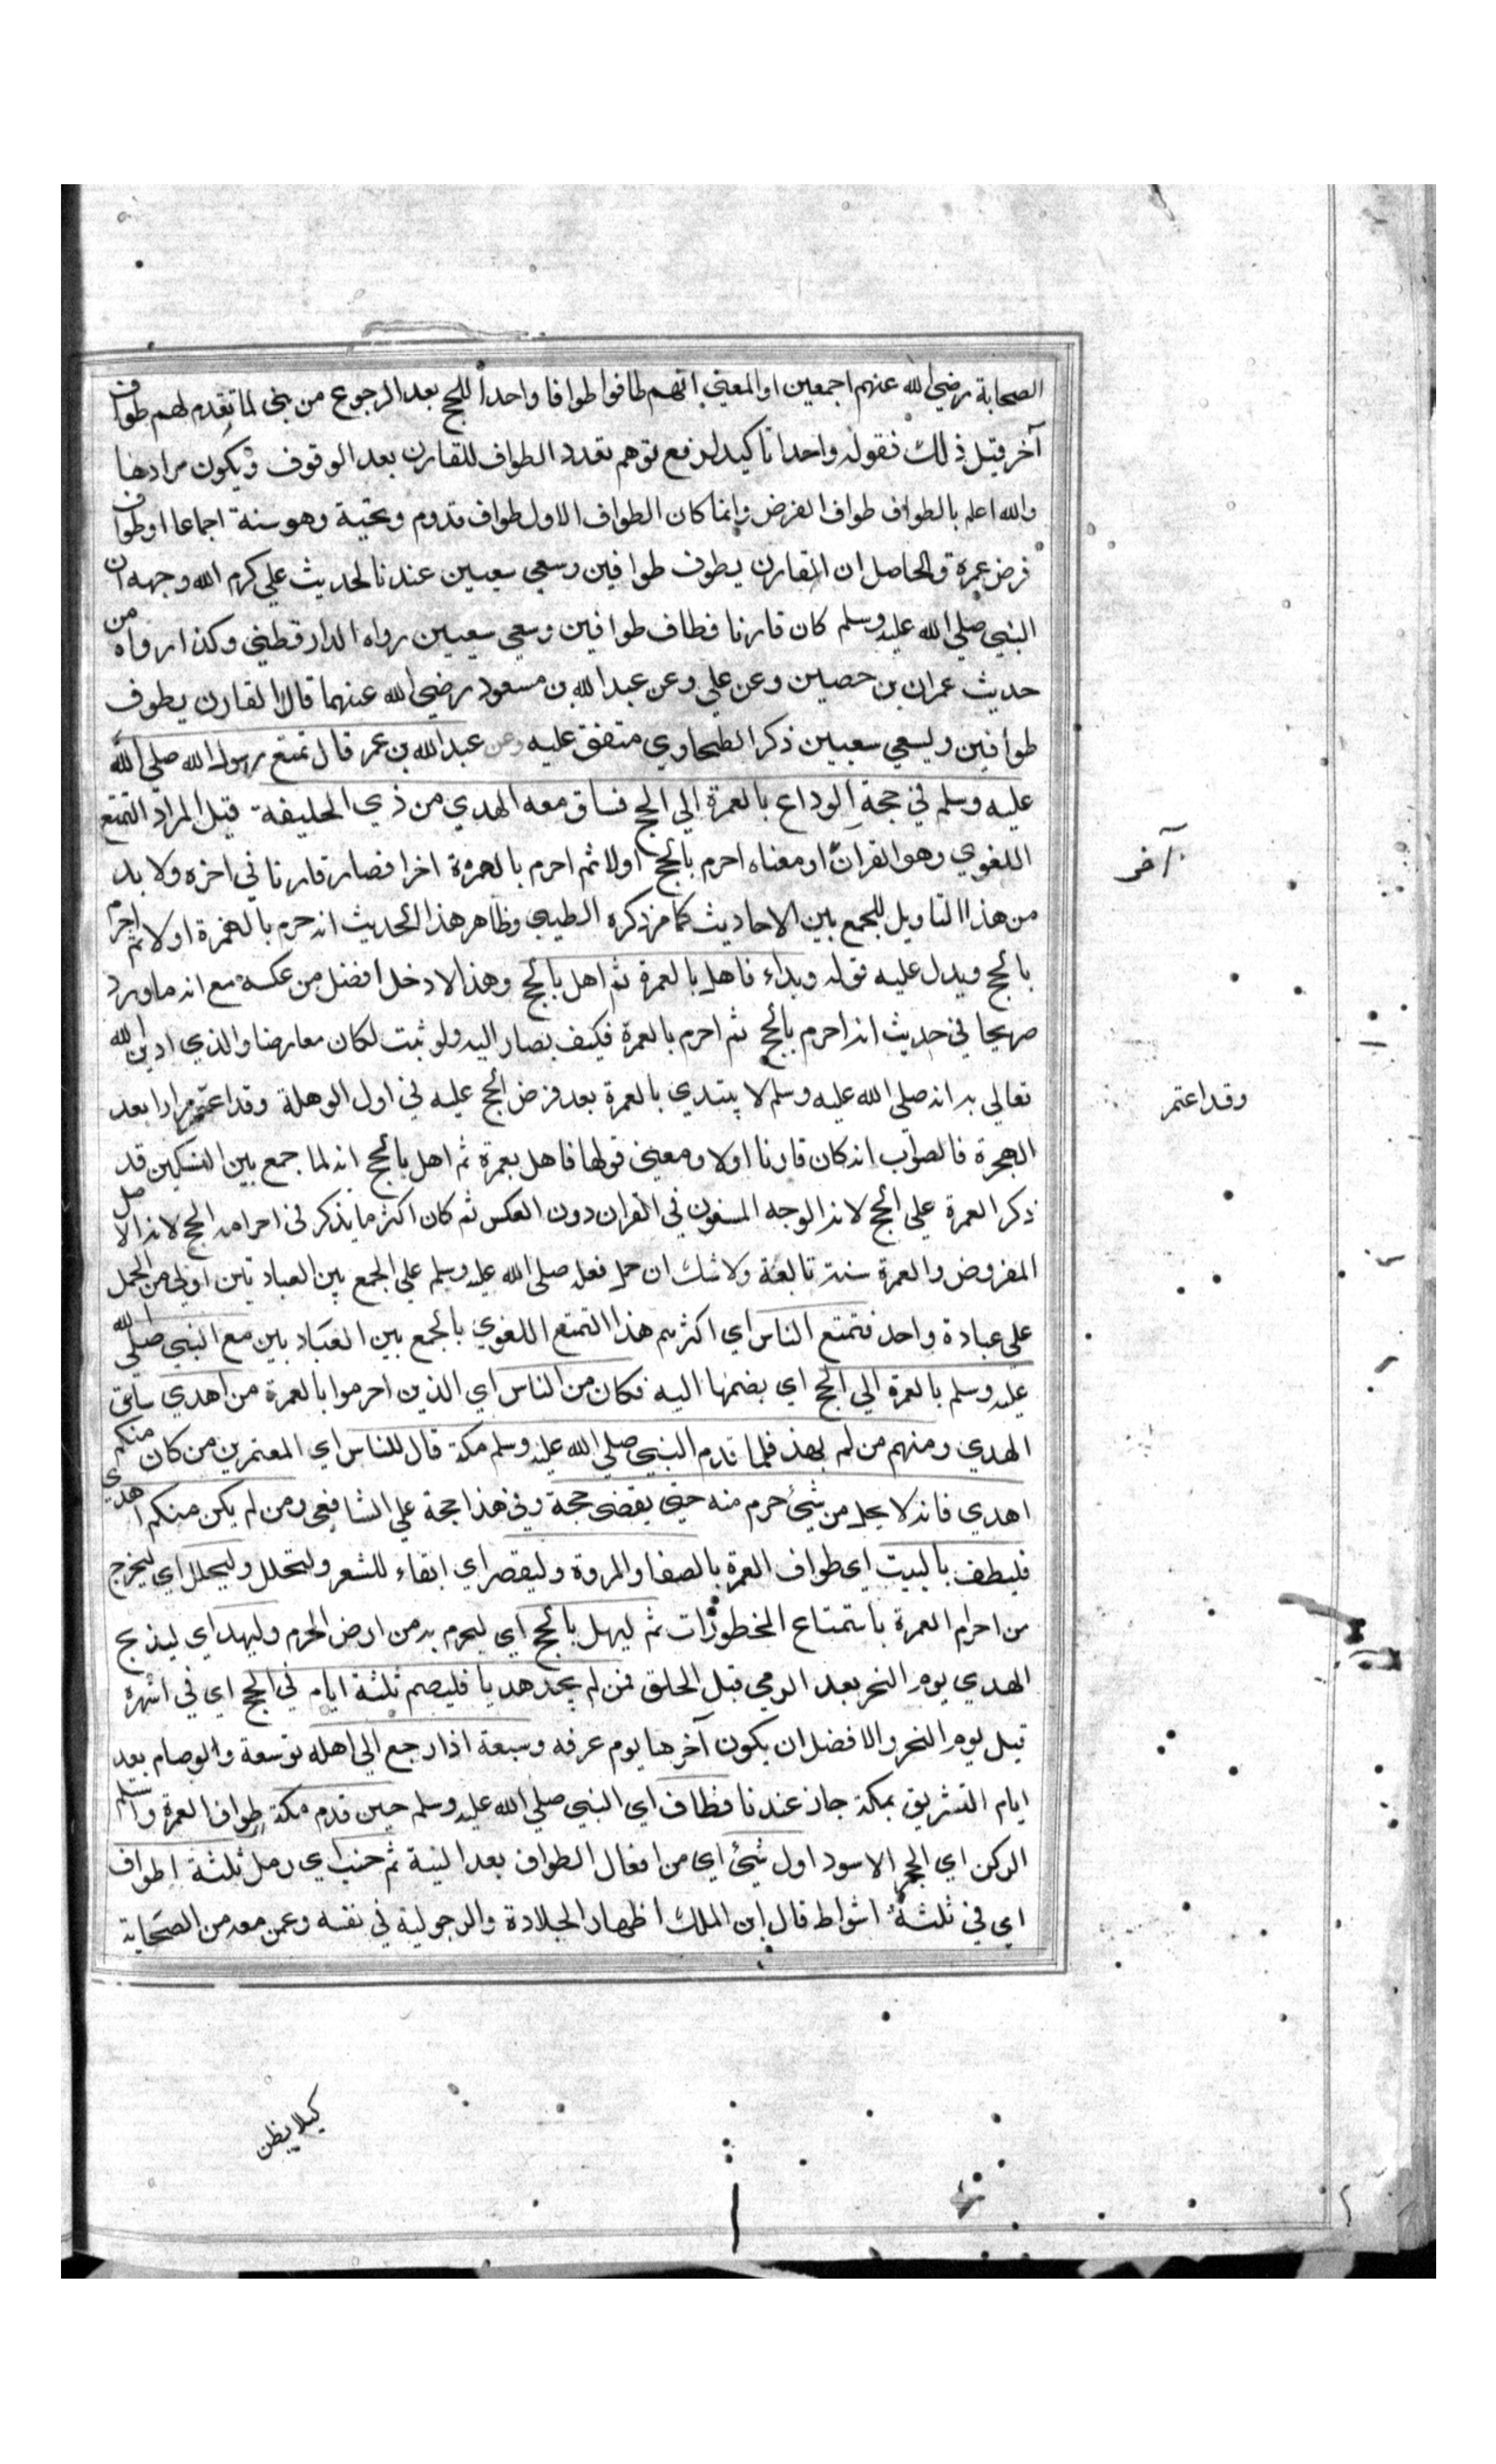 الصحابة رضي الله عنهم اجمعين او المعني انهم طافوا طوافا واحدا للحج بعد الرجوع من مني لما تقدم لهم طواف
آخر قبل ذلك فقوله واحدا تاكيد لدفع توهم تعدد الطواف للقارن بعد الوقوف ويكون مرادها
والله اعلم بالطواف طواف الفرض وانما كان الطواف الاول طواف قدوم وتحية وهو سنة اجماعا او طواف
فرض عمرة والحاصل ان القارن يطوف طوافين وسعي سعيين عندنا لحديث علي كرم الله وجهه ان
النبي صلي الله عليه وسلم كان قارنا فطاف طوافين وسعي سعيين رواه الدارقطني وكذا رواه من
حديث عمران بن حصين وعن علي وعن عبد الله بن مسعود رضي الله عنهما قالا القارن يطوف
طوافين ويسعي سعيين ذكر الطحاوي متفق عليه وعن عبد الله بن عمر قال تمتع رسول الله صلي الله
عليه وسلم في حجة الوداع بالعمرة الي الحج فساق معه الهدي من ذي الحليفة قيل المراد التمتع
اللغوي وهو القران او معناه احرم بالحج اولا ثم احرم بالعمرة اخرا فصار قارنا في اخره ولا بد
من هذا التاويل للجمع بين الاحاديث كما مر ذكره الطيبي وظاهر هذا الحديث انه حرم بالعمرة اولا ثم احرم
بالحج ويدل عليه قوله وبداء فاهل بالعمرة ثم اهل بالحج وهذا الادخل افضل من عكسه مع انه ما ورد
صريحا في حديث انه احرم بالحج ثم احرم بالعمرة فكيف يصار اليه ولو ثبت لكان معارضا والذي ادين الله
تعالي به انه صلي الله عليه وسلم لا يبتدي بالعمرة بعد فرض الحج عليه في اول الوهلة وقد اعتمر مرارا بعد
الهجرة فالصوب انه كان قارنا اولا ومعني قولها فاهل بعمرة ثم اهل بالحج انه لما جمع بين النسكين قد
ذكر العمرة علي الحج لانه الوجه المسنون في القران دون العكس ثم كان اكثر ما يذكر في احرامه الحج لانه الاصل
المفروض والعمرة سنة تابعة ولا شك ان حمل فعله صلي الله عليه وسلم علي الجمع بين العبادتين اولي من الحمل
علي عبادة واحد فتمتع الناس اي اكثرهم هذا التمتع اللغوي بالجمع بين العبادتين مع النبي صلي الله
عليه وسلم بالعمرة الي الحج اي بضمها اليه فكان من الناس اي الذين احرموا بالعمرة من اهدي ساق
الهدي ومنهم من لم يهد فلما قدم النبي صلي الله عليه وسلم مكة قال للناس اي المعتمرين من كان منكم
اهدي فانه لا يحل من شئ حرم منه حتي يقضي حجة وفي هذا حجة علي الشافعي ومن لم يكن منكم اهدي
فليطف بالبيت اي طواف العمرة بالصفا والمروة وليقصر اي ابقاء للشعر ولتحلل وليحلل اي ليخرج
من احرام العمرة باستمتاع المحظورات ثم ليهل بالحج اي ليحرم به من ارض الحرم وليهد اي ليذبح
الهدي يوم النحر بعد الرمي قبل الحلق فمن لم يجد هديا فليصم ثلثة ايام في الحج اي في اشهره
قبل يوم النحر والافضل ان يكون آخرها يوم عرفه وسبعة اذا رجع الي اهله توسعة والوصام بعد
ايام التشريق بمكة جاز عندنا فطاف اي النبي صلي الله عليه وسلم حين قدم مكة طواف العمرة واستلم
الركن اي الحجر الاسود اول شئ اي من افعال الطواف بعد النية ثم خب اي رمل ثلثة اطواف
اي في ثلثة اشواط قال ابن الملك اظهار الجلادة والرجولية في نفسه وعمن معه من الصحابة
آخر
وقد اعتمر
كيلا يظن